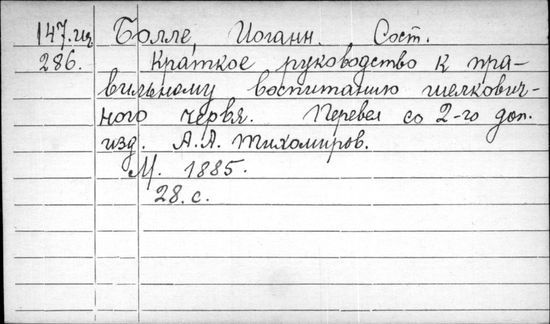 147.из Болле, Иоганн. Сост.
286. Краткое руководство к пра-
вильному воспитанию шелкович-
ного червя. Перевел со 2-го доп.
изд. А.А. Тихомиров.
М. 1885.
28. с.